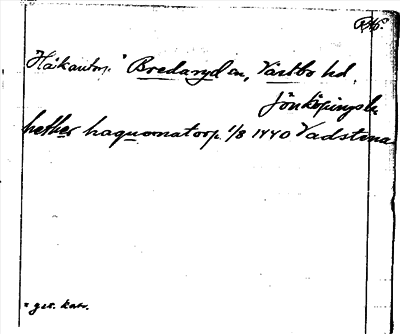 Håkantorp * Bredaryd sn, Västbo hd,
Jönköpings l.
hether haquonatorp 1/8 1440 Vadstena
* gst. kat.